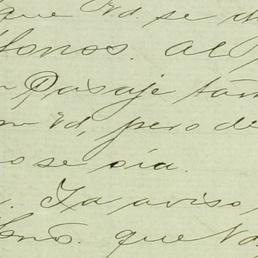 que Vd. se d
fonos. Al
Pasaje tam
Vd, pero de
o se oía.
. Ya aviso,
que Vd